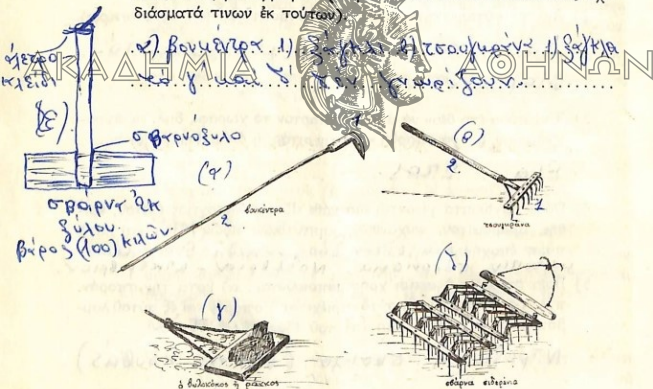 διάσματά τινων ἐκ τούτων).
α) βουκέντρα 1) ξάγκλι β) τσουγκράνα 1) ξάγκλα
τὸ γ΄ καὶ ζ δὲν γνωρίζουν.
ΑΚΑΔΗΜΙΑ ΑΘΗΝΩΝ
άλετρο
κλειδὶ
(ε)
σβαρνόξυλο
σβάρνα ἐκ
ξύλου
βάρος (100) κιλῶν
(α)
1
2
βουκέντρα
(β)
2
1
τσουγκράνα
(γ)
ὁ βωλοκόπος ἢ ράκκος
(ζ)
σβάρνα σιδερένια